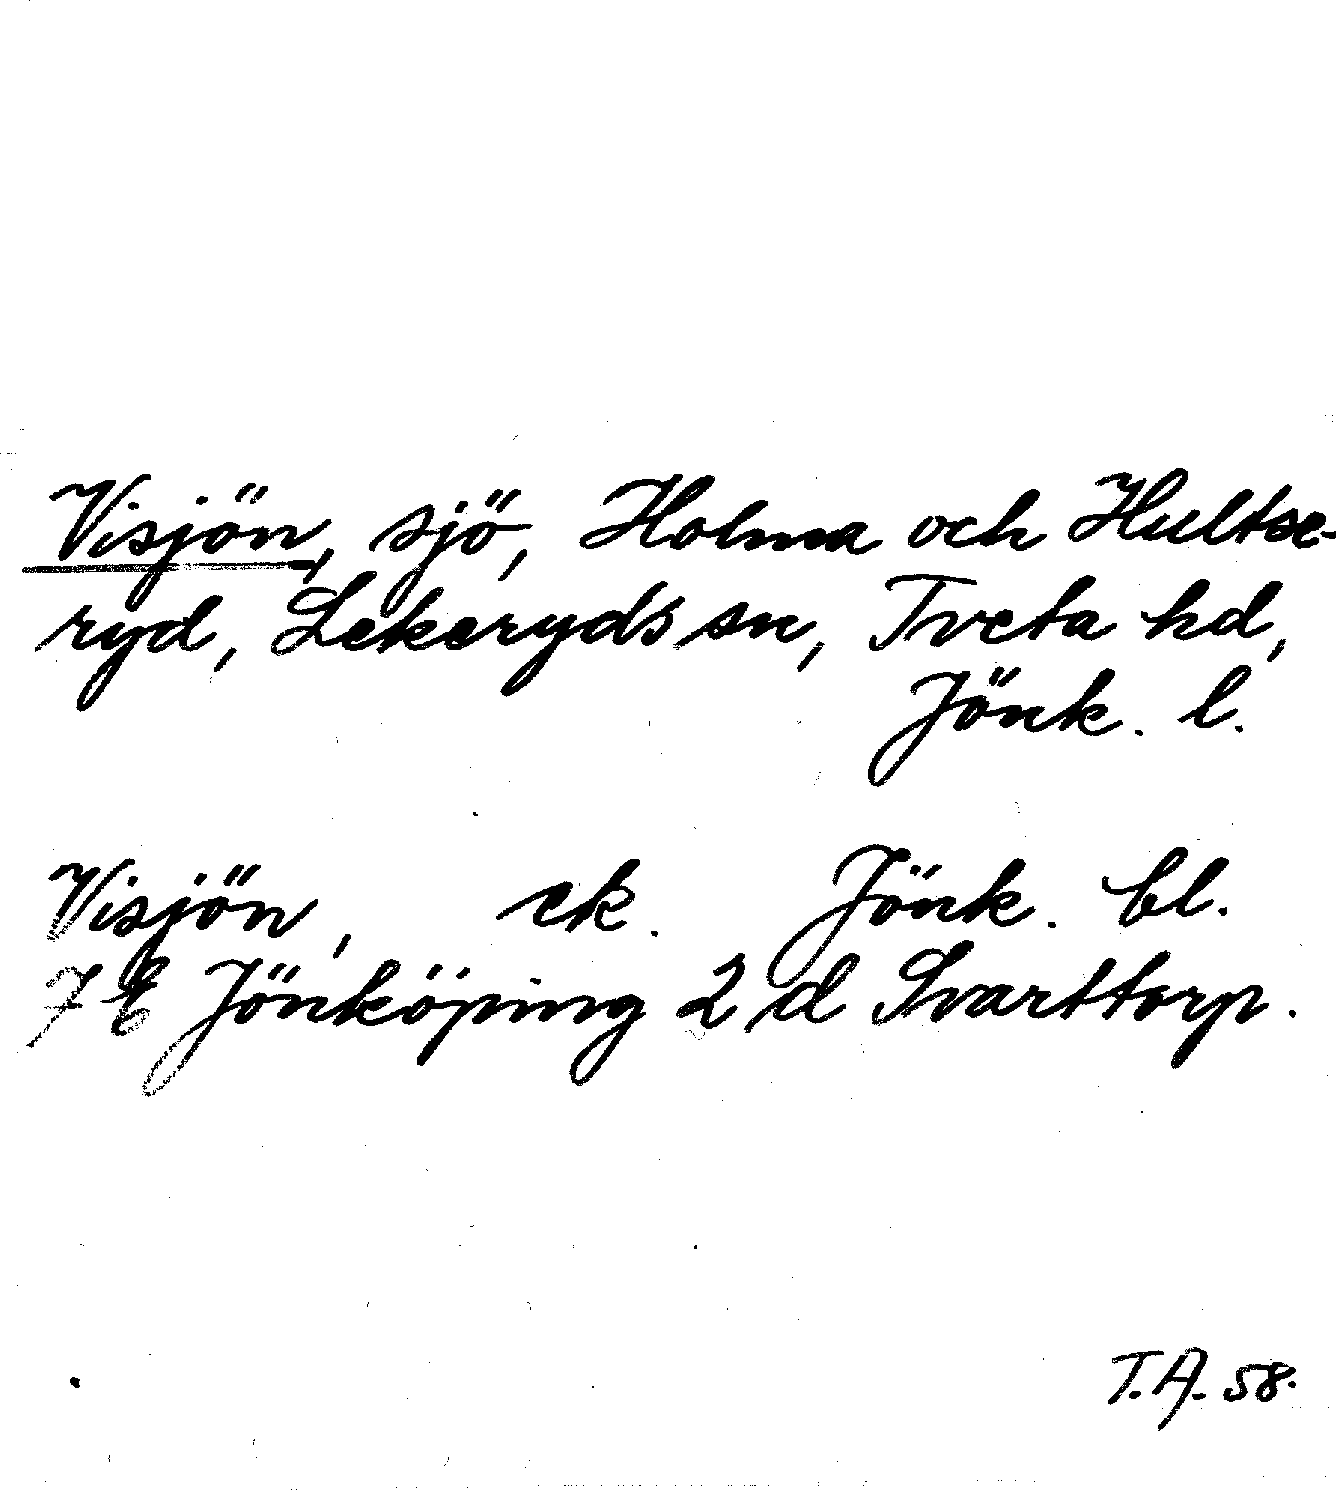 Visjön, sjö, Holma och Hultse-
ryd, Lekeryds sn, Tveta hd,
Jönk. l.
Visjön, ek. Jönk. bl.
7 E Jönköping 2 d Svarttorp.
T.A. 58.